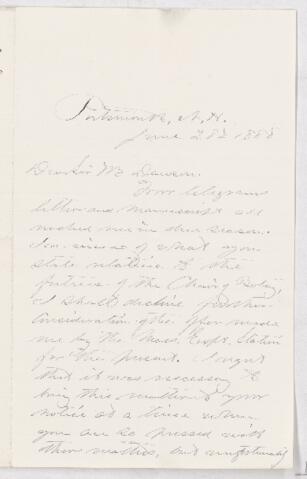 Portsmouth, N.H.
June 28, 1888
Director Mr Dawson.
Your telegram
letter and manuscript all
reached me in due season.
In view of what you
state relative to the
future of the Chair of Botany,
I shall decline further
consideration of the offer made
me by the Mass. Expt. Station
for the present. I regret
that it was necessary to
bring this matter to your
notice at a time when
you are so pressed with
other matters, but unfortunately